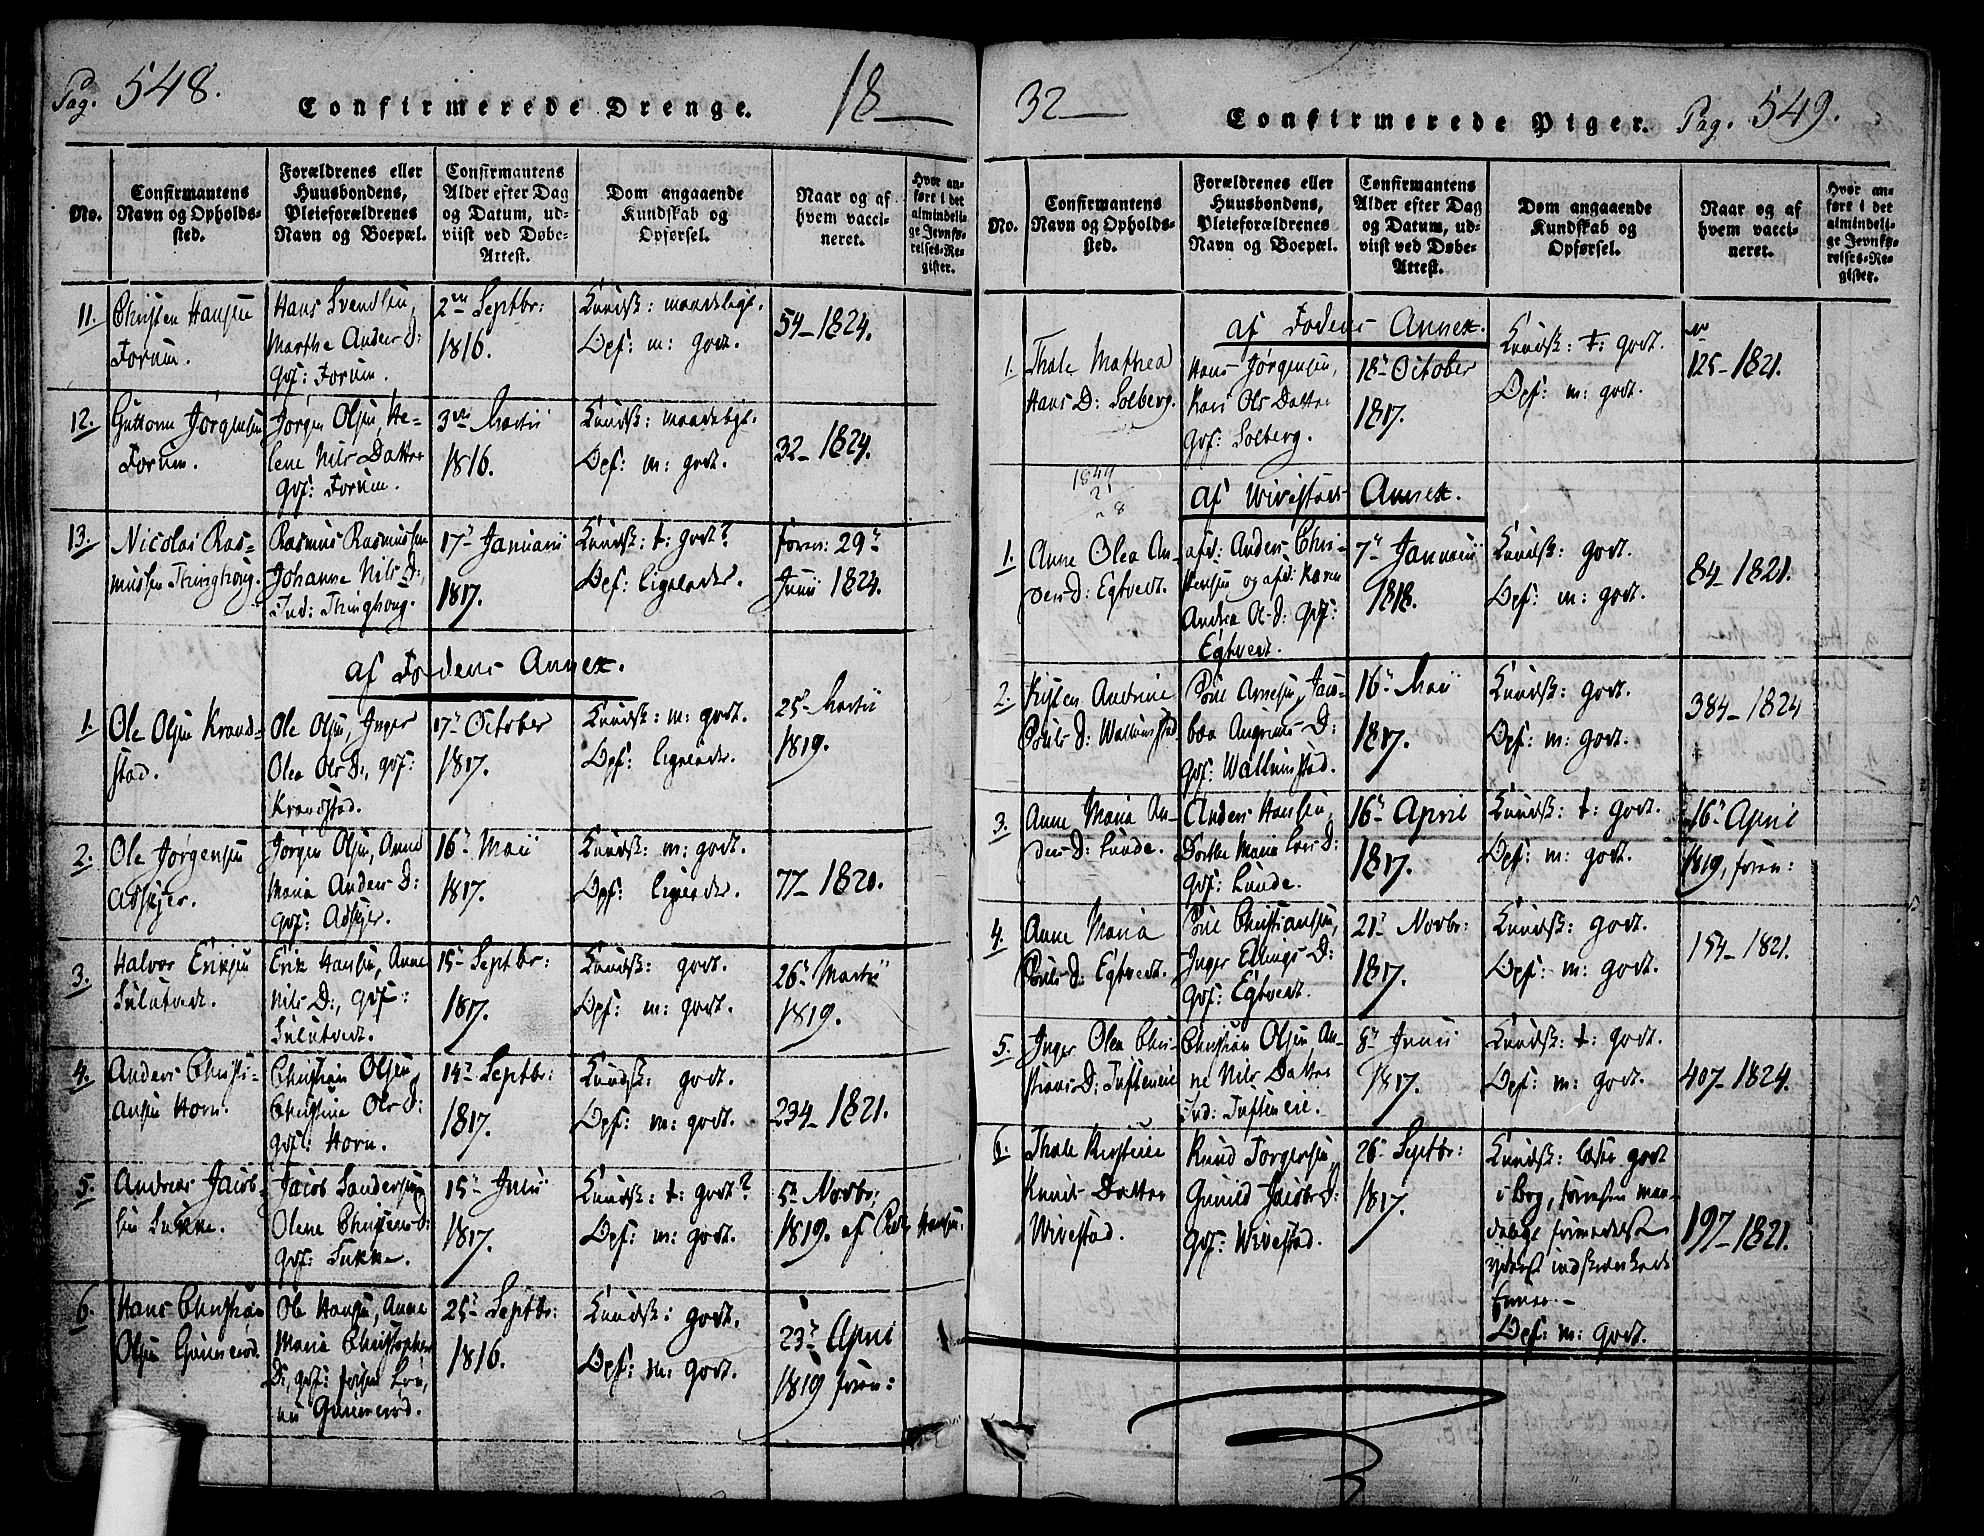 Pag. 548.
Confirmerede Drenge.
18
No.
Confirmantens Navn og Opholds-sted.
Forældrenes eller Huusbondens, Pleieforældrenes Navn og Boepæl.
Confirmantens Alder efter Dag og Datum, ud-viist ved Døbe-Attest.
Dom angaaende Kundskab og Opførsel.
Naar og af hvem vacci-neret.
Hvor an-ført i det almindeli-ge Jevnfø-relses-Re-gister.
11.
Christen Hansen
Forum.
Hans Svendsen,
Marthe Anders D:
Gsf: Forum.
2den Septbr:
1816.
Kundsk: maadeligt.
Opf: m: godt.
54-1824.
12.
Guttorm Jørgensen
Forum.
Jørgen Olsen He-
lene Nils Datter
Gsf: Forum.
3die Martii
1816.
Kundsk: maadeligt.
Opf: m: godt.
32-1824.
13.
Nicolai Ras-
mussen Thinghoug.
Rasmus Rasmussen
Johanne Nils D:,
Ind: Thinghoug.
17de Januarii
1817.
Kundsk: t: godt?
Opf: ligeledes.
foren: 29de
Junii 1824.
af Fodens Annex.
1.
Ole Olsen Krand-
stad.
Ole Olsen, Inger
Olea Ols D:, gsf:
Krandstad.
17de October
1817.
Kundsk: m: godt.
Opf: ligeledes.
25de Martii
1819.
2.
Ole Jørgensen
Adskjer.
Jørgen Olsen, Anne
Maria Anders D:
gsf: Adskjer.
16de Maii
1817.
Kundsk: m: godt.
Opf: ligeledes.
77-1821.
3.
Halvor Eriksen
Erik Hansen, Anne
Nils D:, gsf:
15de Septbr:
1817.
Kundsk: godt.
Opf: m: godt.
26de Martii
1819.
4.
Anders Christi-
ansen Horn.
Christian Olsen,
Christine Ols D:
gsf: Horn.
14de Septbr:
1817.
Kundsk: godt.
Opf: m: godt.
234-1821.
5.
Andreas Jacob-
sen Sukke.
Jacob Sandersen,
Olene Christens D:
gsf: Sukke.
15de Junii
1817.
Kundsk: t: godt?
Opf: m: godt.
5te Novbr:
1819. af Peder Hansen.
6.
Hans Christian
Olsen Gunnerød.
Ole Hansen, Anne
Maria Christophers
D:, gsf:
Gunnerød.
25de Septbr:
1816.
Kundsk: godt.
Opf: m: godt.
23de April
1819 foren:
32
Confirmerede Piger.
Pag. 549.
No.
Confirmantens Navn og Opholds-sted.
Forældrenes eller Huusbondens, Pleieforældrenes Navn og Boepæl.
Confirmantens Alder efter Dag og Datum, ud-viist ved Døbe-Attest.
Dom angaaende Kundskab og Opførsel.
Naar og af hvem vacci-neret.
Hvor an-ført i det almindeli-ge Jevnfø-relses-Re-gister.
af Fodens Annex.
1.
Thale Mathea
Hans D: Solberg.
Hans Jørgensen,
Kari Ols Datter
Gsf: Solberg.
18de October
1817.
Kundsk: t: godt.
Opf: m: godt.
125-1821.
af Wivestads Annex.
1.
Anne Olea An-
ders D: Egtvedt.
afd: Anders Chri-
stensen og afd: Karen
Andrea A D: gsf:
Egtvedt.
7de Januarii
1818.
Kundsk: godt.
Opf: m: godt.
84-1821.
2.
Kirsten Andrine
Pouls D: Wallumstad.
Poul Arnesen, Jaco-
bea Angrims D:
gsf: Wallumstad.
16de Maii
1817.
Kundsk: godt.
Opf: m: godt.
384-1824
3.
Anne Maria An-
ders D: Lunde.
Anders Hansen,
Dorthe Maria Lars D:
gsf: Lunde.
16de April
1817.
Kundsk: t: godt.
Opf: m: godt.
16de April
1819, foren:
4.
Anne Maria
Pouls D: Egtvedt.
Poul Christiansen,
Inger Ellings D:
gsf: Egtvedt.
21de Novbr:
1817.
Kundsk: godt.
Opf: m: godt.
154-1821.
5.
Inger Olea Chri-
stians D: Tufteneie
Christian Olsen An-
ne Nils Datter
Ind: Tufteneie.
8de Junii
1817.
Kundsk: t: godt.
Opf: m: godt.
407-1824.
6.
Thale Kirstine
Knuds Datter
Wivestad.
Knud Torgersen,
Gunild Jacobs D:
gsf: Wivestad.
26de Septbr:
1817.
Kundsk: læser godt
i Bog, forresten maa-
deligt formedelst
yderst indskrænkede
Evner.-
Opf: m: godt.
197-1821.